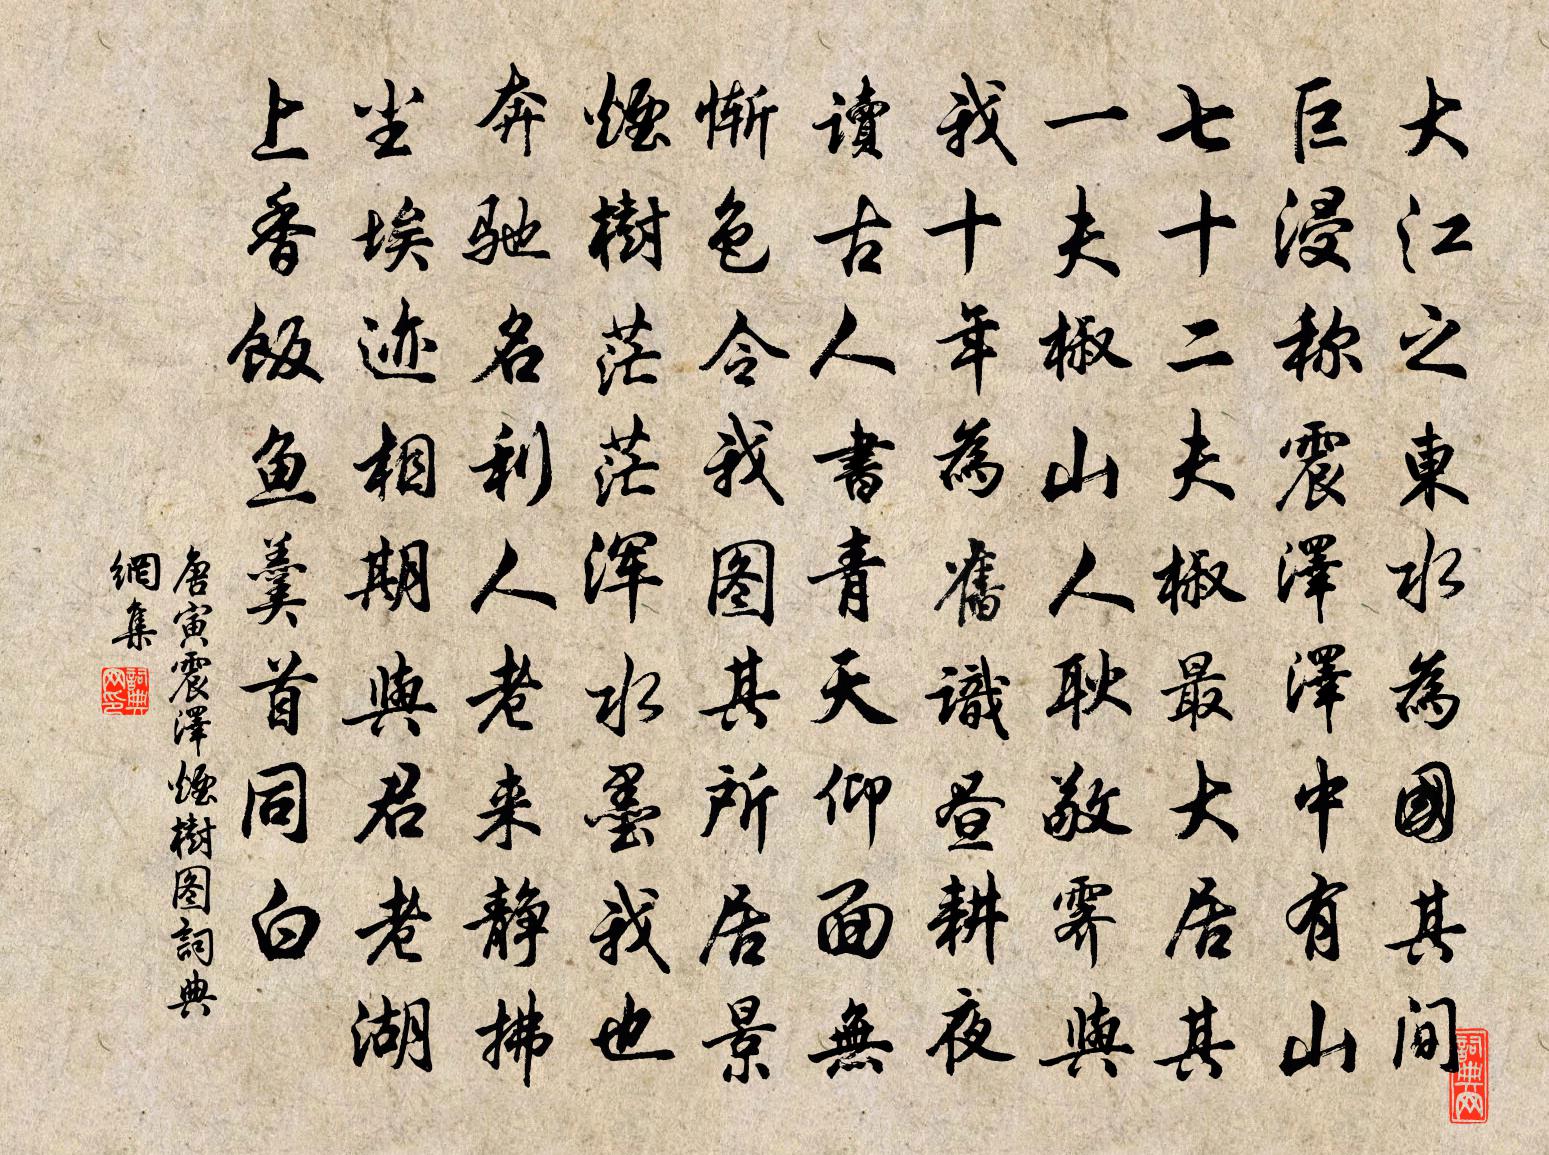 大江之東水為國其間
巨浸称震澤澤中有山
七十二夫椒最大居其
一夫椒山人耿敬霽與
我十年為舊識昼耕夜
讀古人書青天仰面無
慚色令我图其所居景
煙樹茫茫浑水墨我也
奔馳名利人老来静拂
尘埃迹相期與君老湖
上香飯魚羹首同白
唐寅震澤煙樹图詞典
網集
詞典网印
詞典网